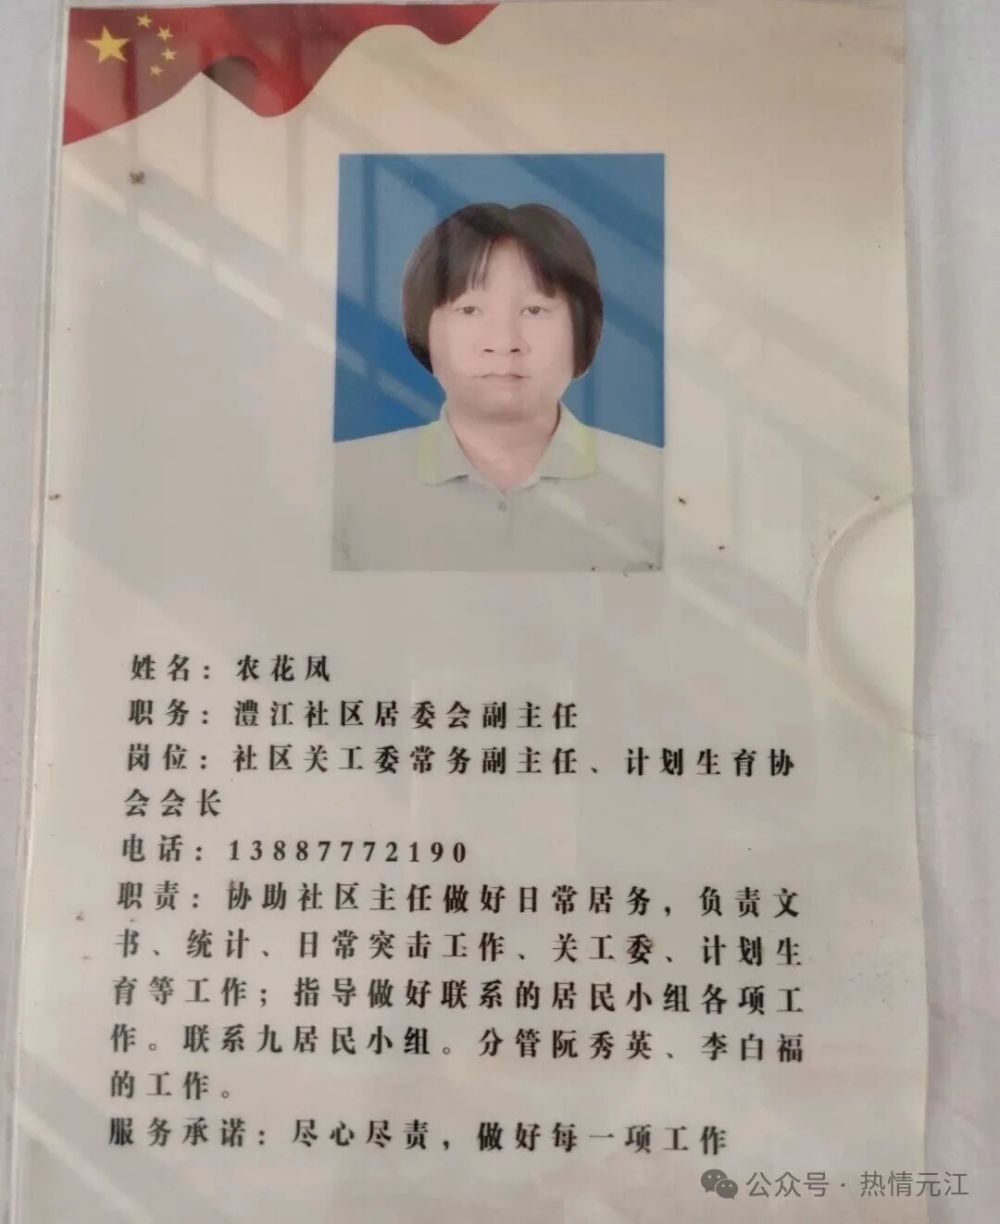 姓名：农花凤
职务：澧江社区居委会副主任
岗位：社区关工委常务副主任、计划生育协
会会长
电话：13887772190
职责：协助社区主任做好日常居务，负责文
书、统计、日常突击工作、关工委、计划生
育等工作；指导做好联系的居民小组各项工
作。联系九居民小组。分管阮秀英、李白福
的工作。
服务承诺：尽心尽责，做好每一项工作
公众号·热情元江